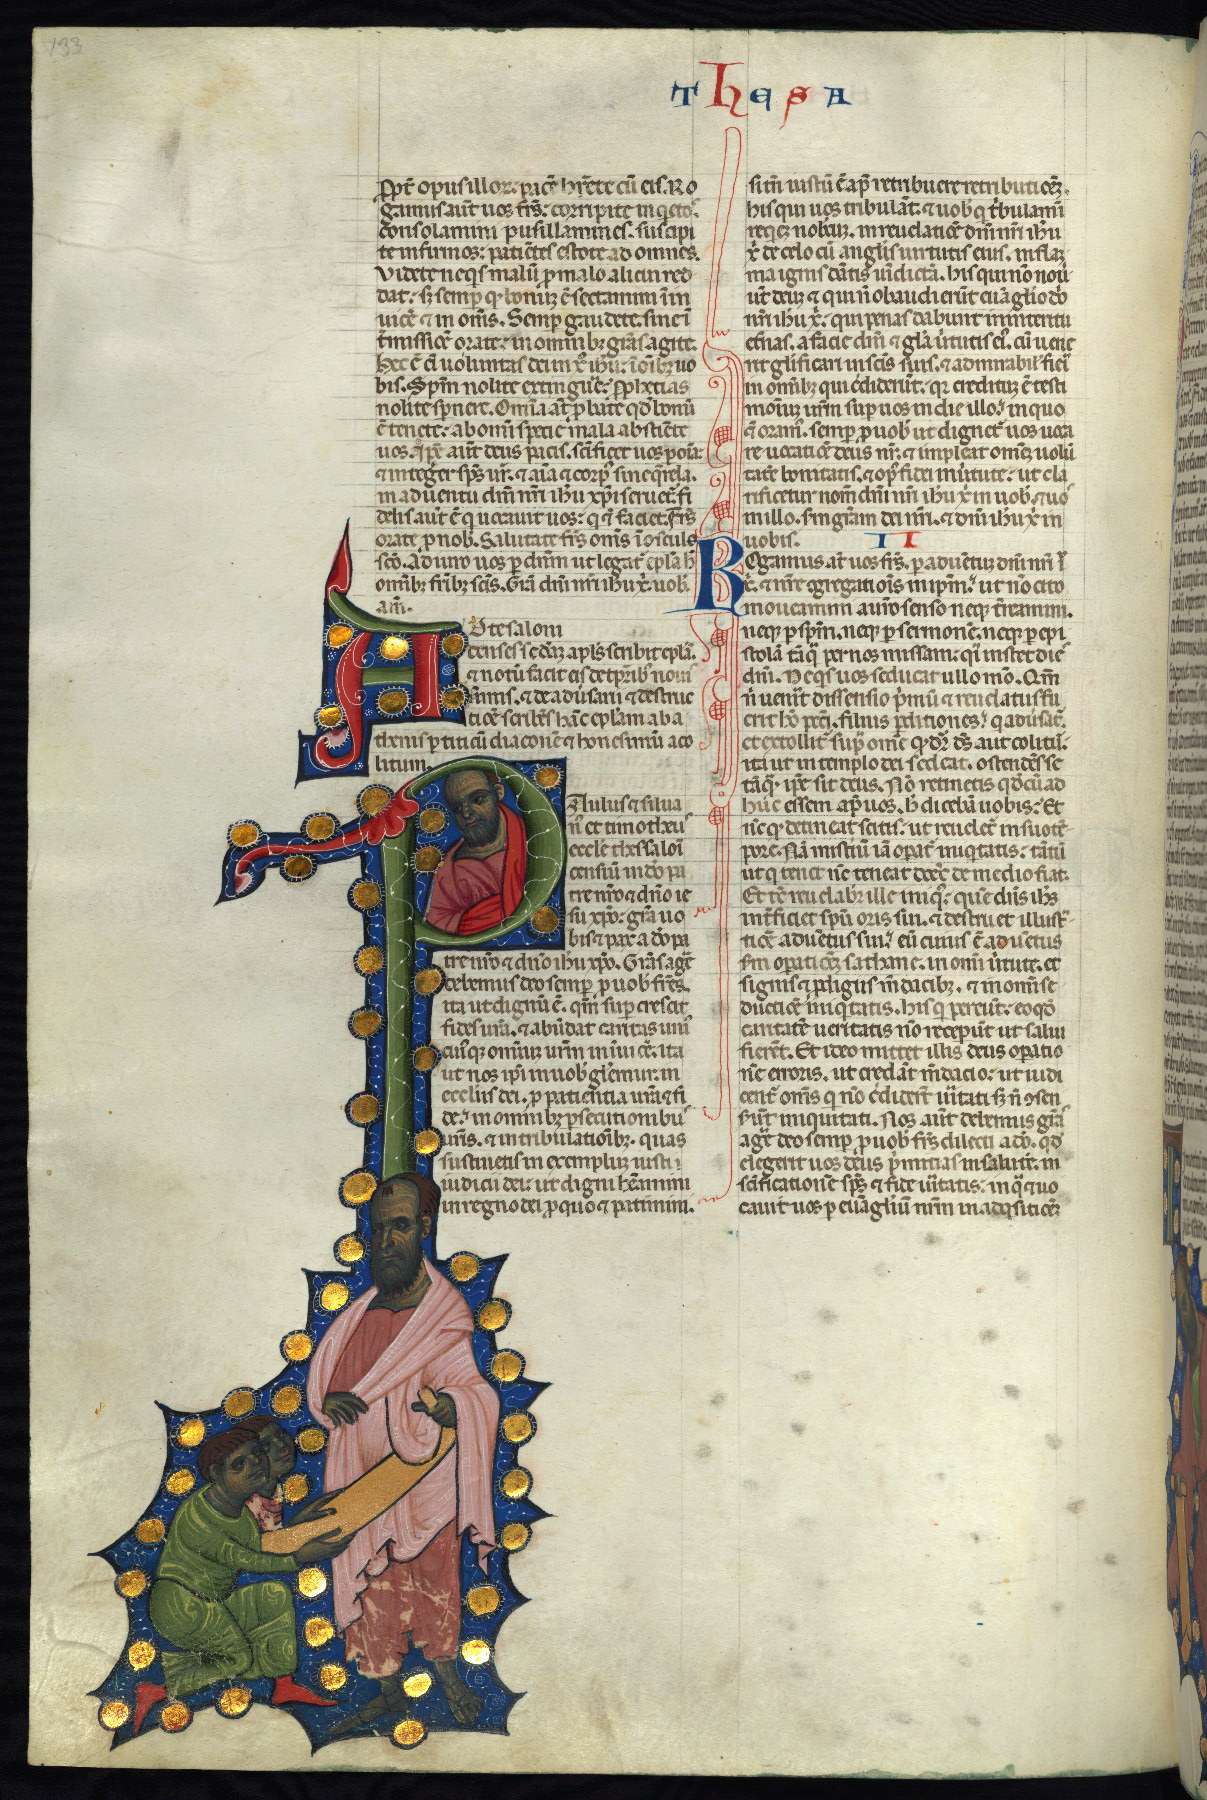 133
Thesa
ꝓpt̃ opus illoꝝ: pacẽ hr̃ete cũ eis. Ro
gamus aũt uos frẽs: corripite inq̃etos.
consolamini pusillanimes. suscipi
te infirmos: patiẽtes estote ad omnes.
Videte ne q̃s malũ p̃ malo alicui red
dat: sꝫ semp qđ bonuꝫ ẽ sectamini in in
uicẽ ⁊ in om̃s. Semp gaudete. sine ĩ
t̃missiõe orate: in omnibꝫ gr̃as agite.
Hec ẽ eĩ uoluntas dei in xr̃o ihũ: ĩ oĩbꝫ uo
bis. Spm̃ nolite extinguẽ: ꝓphetias
nolite sp̃nere. Omĩa aũt ꝓbate qđ bonũ
ẽ tenete: ab omni specie mala abstinete
uos. Ip̃e aũt deus pacis. sc̃ificet uos ꝑ oĩa:
⁊ integer sp̃s ur̃. ⁊ aĩa ⁊ corpꝰ sine q̃rela.
in aduentu dñi nr̃i ihu xp̃i seruet̃. fi
delis aũt ẽ q̃ uocauit uos: q̃ ⁊ faciet. Fr̃s
orate ꝓ nob̃. Salutate fr̃s om̃s ĩ osculo
sc̃o. Adiuro uos ꝑ dñm ut legat̃ epl̃a h̃
omĩbꝫ fr̃ibꝫ sc̃is. Gr̃a dñi nr̃i ihu xr̃i uob̃.
am̃.
Ad tesaloni
censes sc̃dam apl̃s scribit epl̃am.
⁊ notũ facit eis de tp̃ribꝰ noui
ssimis. ⁊ de aduersarii ⁊ destruc
tiõe. scribẽs hãc epl̃am ab a
thenis ꝑ titicũ diaconẽ ⁊ honesimũ aco
litum.
Paulus ⁊ silua
nꝰ et timotheus
eccl̃e thessaloni
censiũ in dõ pa
tre nr̃o ⁊ dño ie
su xp̃o: gr̃a uo
bis ⁊ pax a dõ pa
tre nr̃o ⁊ dño ihu xp̃o. Gr̃as agẽ
debemus deo semp ꝓ uob̃ fr̃es.
ita ut dignũ ẽ. qm̃ sup crescit
fides ur̃a. ⁊ abũdat caritas uni
cuiꝰqꝫ omĩuꝫ ur̃m in inuicẽ. ita
ut nos ip̃i in uob̃ gl̃iemur. in
eccl̃iis dei. ꝓ patientia ur̃a ⁊ fi
de: in omnibꝫ psecutionibꝰ
ur̃is. ⁊ in tribulatiõibꝫ. quas
sustinetis in exempluꝫ iusti
iudicii dei: ut digni hẽamini
in regno dei. ꝓ quo ⁊ patimini.
si tñ iustũ ẽ ap̃ retribuere retributiõeꝫ.
his qui uos tribulãt. ⁊ uob̃ q̃ t̃bulamĩ
reqeꝫ nobiꝫ. in reuelatiõe dñi nr̃i ihu
xr̃ de celo cũ angl̃is uirtutis eius. in flaꝫ
ma ignis dãtis uĩdictã. his qui nõ noũ
ut deuꝫ ⁊ qui nõ obaudierũt euãglio dõ
nr̃i ihu xr̃: qui penas dabunt in interitu
et̃nas. a facie dñi ⁊ gl̃a uirtutis eĩ. cũ uene
rit gl̃ificari in sc̃is suis. ⁊ admirabil̃ fieri
in omĩbꝫ qui c̃didert̃. qr̃ credituꝫ ẽ testi
moniuꝫ ur̃m sup uos in die illo. in quo
⁊ oramꝰ. semp ꝓ uob̃ ut dignet̃ uos uoca
re uocatiõe deus nr̃. ⁊ impleat omẽꝫ uolũ
tatẽ bonitatis. ⁊ opꝰ fidei in uirtute: ut cla
rificetur nom̃ dñi nr̃i ihu xr̃ in uob̃. ⁊ uos
in illo. s̃m gr̃am dei nr̃i. ⁊ dñi ihu xr̃ in
uobis. II
Rogamus aũt uos fr̃s. ꝑ aduentũ dñi nr̃i ih̃
xr̃. ⁊ nr̃e ogregatiõis in ip̃m: ut nõ cito
moueamini a ur̃o senso neqꝫ t̃reamini.
neqꝫ ꝑ spm̃. neqꝫ ꝑ sermonẽ. neqꝫ ꝑ epi
stolã tãq̃ per nos missam: q̃i instet dies
dñi. Ne q̃s uos seducat ullo mõ. Qm̃
nisi uenit̃ dissensio p̃mũ ⁊ reuelatus fu
erit hõ peccĩ. filius ꝑditiones. q̃ adũsat̃.
et extollit̃ supᵃ om̃e qđ dr̃ d̃s aut colitur̃.
ita ut in templo dei sedeat. ostendẽs se
tãq̃. ip̃e sit deus. Nõ retinetis qđ cũ ad
huc essem apᵈ uos. h̃ dicebã uobis: Et
nũc qđ detineat scitis: ut reuelet̃ in suo tẽ
pore. Nã misteriũ iã opat̃ iniq̃tatis: tãtũ
ut q̃ tenet nũc teneat donec̃ de medio fiat.
Et tc̃ reuelabit̃ ille iniq̃: quẽ dñs ih̃s
int̃ficiet spũ oris sui. ⁊ destruet illust̃
tiõe aduẽtus sui: eũ cuius ẽ aduẽtus
s̃m opatiõeꝫ sathane. in omni ũtute. et
signis ⁊ ꝓdigiis m̃dacibꝫ. ⁊ in omni se
ductiõe iniq̃tatis. his q̃ pereũt: eo qđ
caritatẽ ueritatis nõ recepũt ut salui
fierẽt. Et ideo mittet illis deus opatio
nẽ erroris. ut credãt m̃dacio: ut iudi
cent̃ om̃s q̃ nõ c̃didert̃ uĩtati sꝫ ↄsen
serũt iniquitati. Nos aũt debemus gr̃as
agẽ deo semp ꝓ uob̃ fr̃s dilecti a dõ. qđ
elegerit uos deus p̃mitias in salutẽ. in
sc̃ificatione sp̃s ⁊ fide uĩtatis: in q̃ ⁊ uo
cauit uos ꝑ euãgliũ nr̃m in adq̃sitiõeꝫ